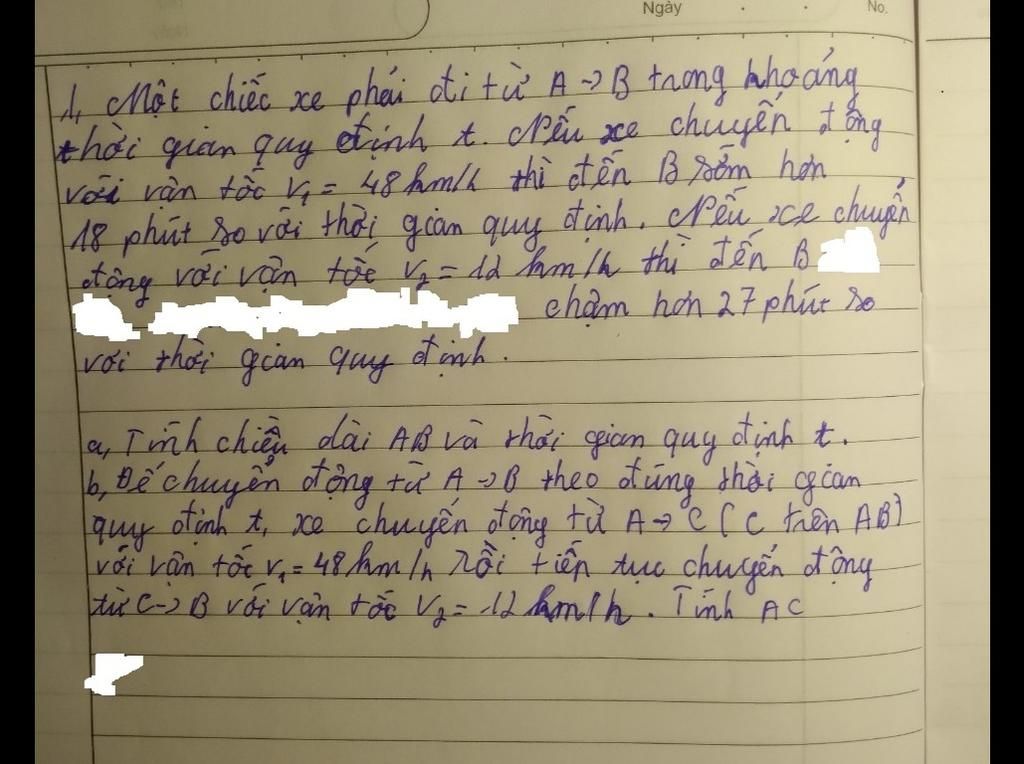 Ngày . . No.
1, Một chiếc xe phải đi từ A → B trong khoảng
thời gian quy định t. Nếu xe chuyển động
với vận tốc v₁ = 48 km/h thì đến B sớm hơn
18 phút so với thời gian quy định. Nếu xe chuyển
động với vận tốc v₂ = 12 km/h thì đến B
chậm hơn 27 phút so
với thời gian quy định.
a, Tính chiều dài AB và thời gian quy định t.
b, Để chuyển động từ A → B theo đúng thời gian
quy định t, xe chuyển động từ A → C (C trên AB)
với vận tốc v₁ = 48 km/h rồi tiếp tục chuyển động
từ C → B với vận tốc v₂ = 12 km/h. Tính AC